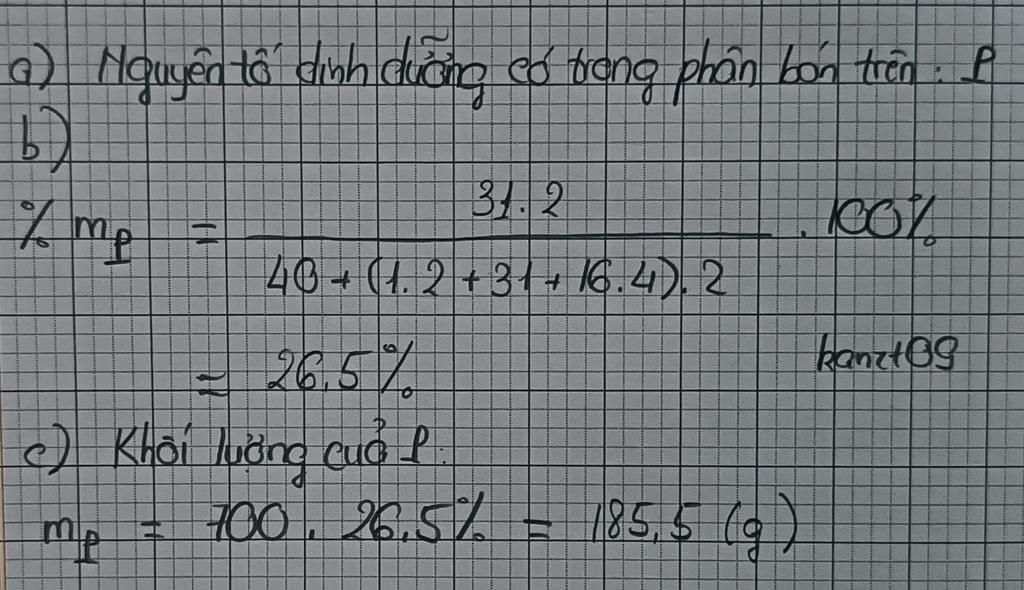 a) Nguyên tố dinh dưỡng có trong phân bón trên: P
b)
% mP = 31.2 / 40 + (1.2 + 31 + 16.4).2 . 100%
= 26,5%
kanzt09
c) Khối lượng của P:
mP = 700 . 26,5% = 185,5 (g)